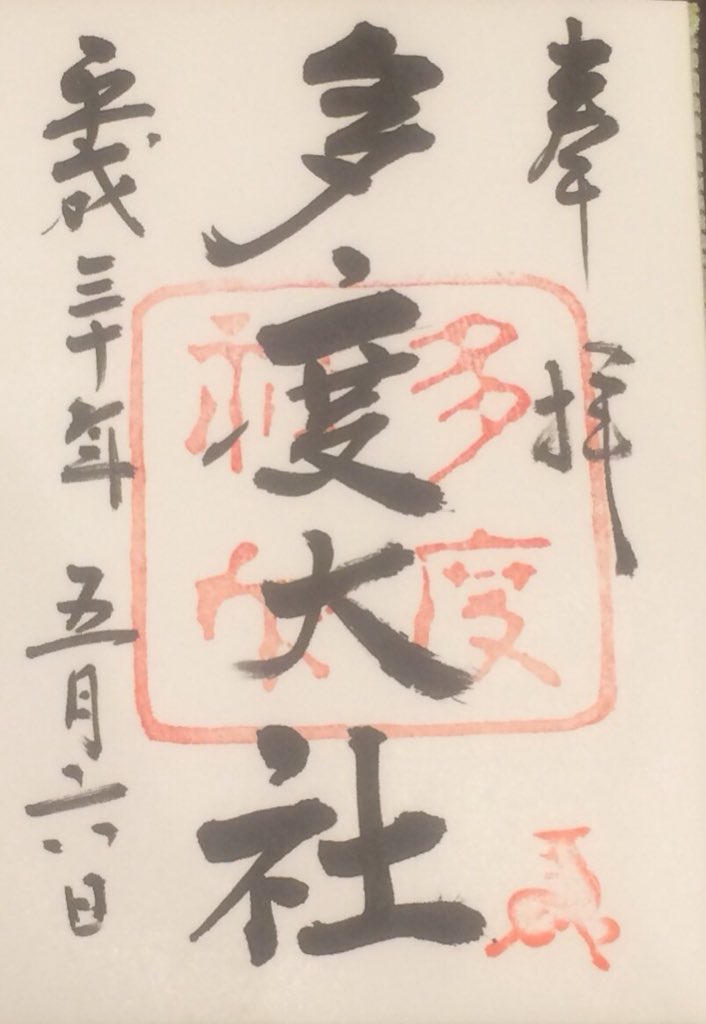 奉拝
多度大社
多度
神社
平成三十年 五月六日